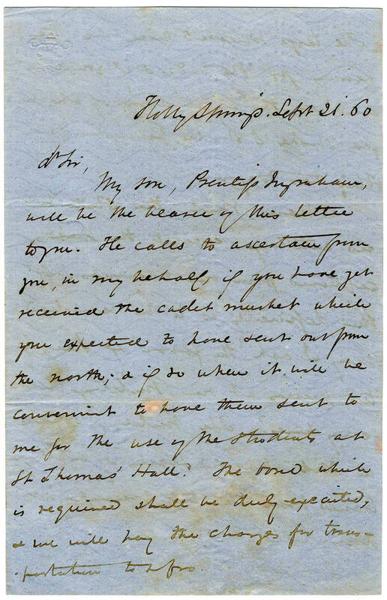 Holly Springs. Sept 21. 60
Dr Sir,
My son, Prentiss Ingraham,
will be the bearer of this letter
to you. He calls to ascertain from
you, in my behalf, if you have yet
received the cadet musket which
you expected to have sent out from
the north; & if so when it will be
convenient to have them sent to
me for the use of the students at
St Thomas' Hall? The bond which
is required shall be duly executed,
& we will pay the charges for trans-
-portation to & fro.